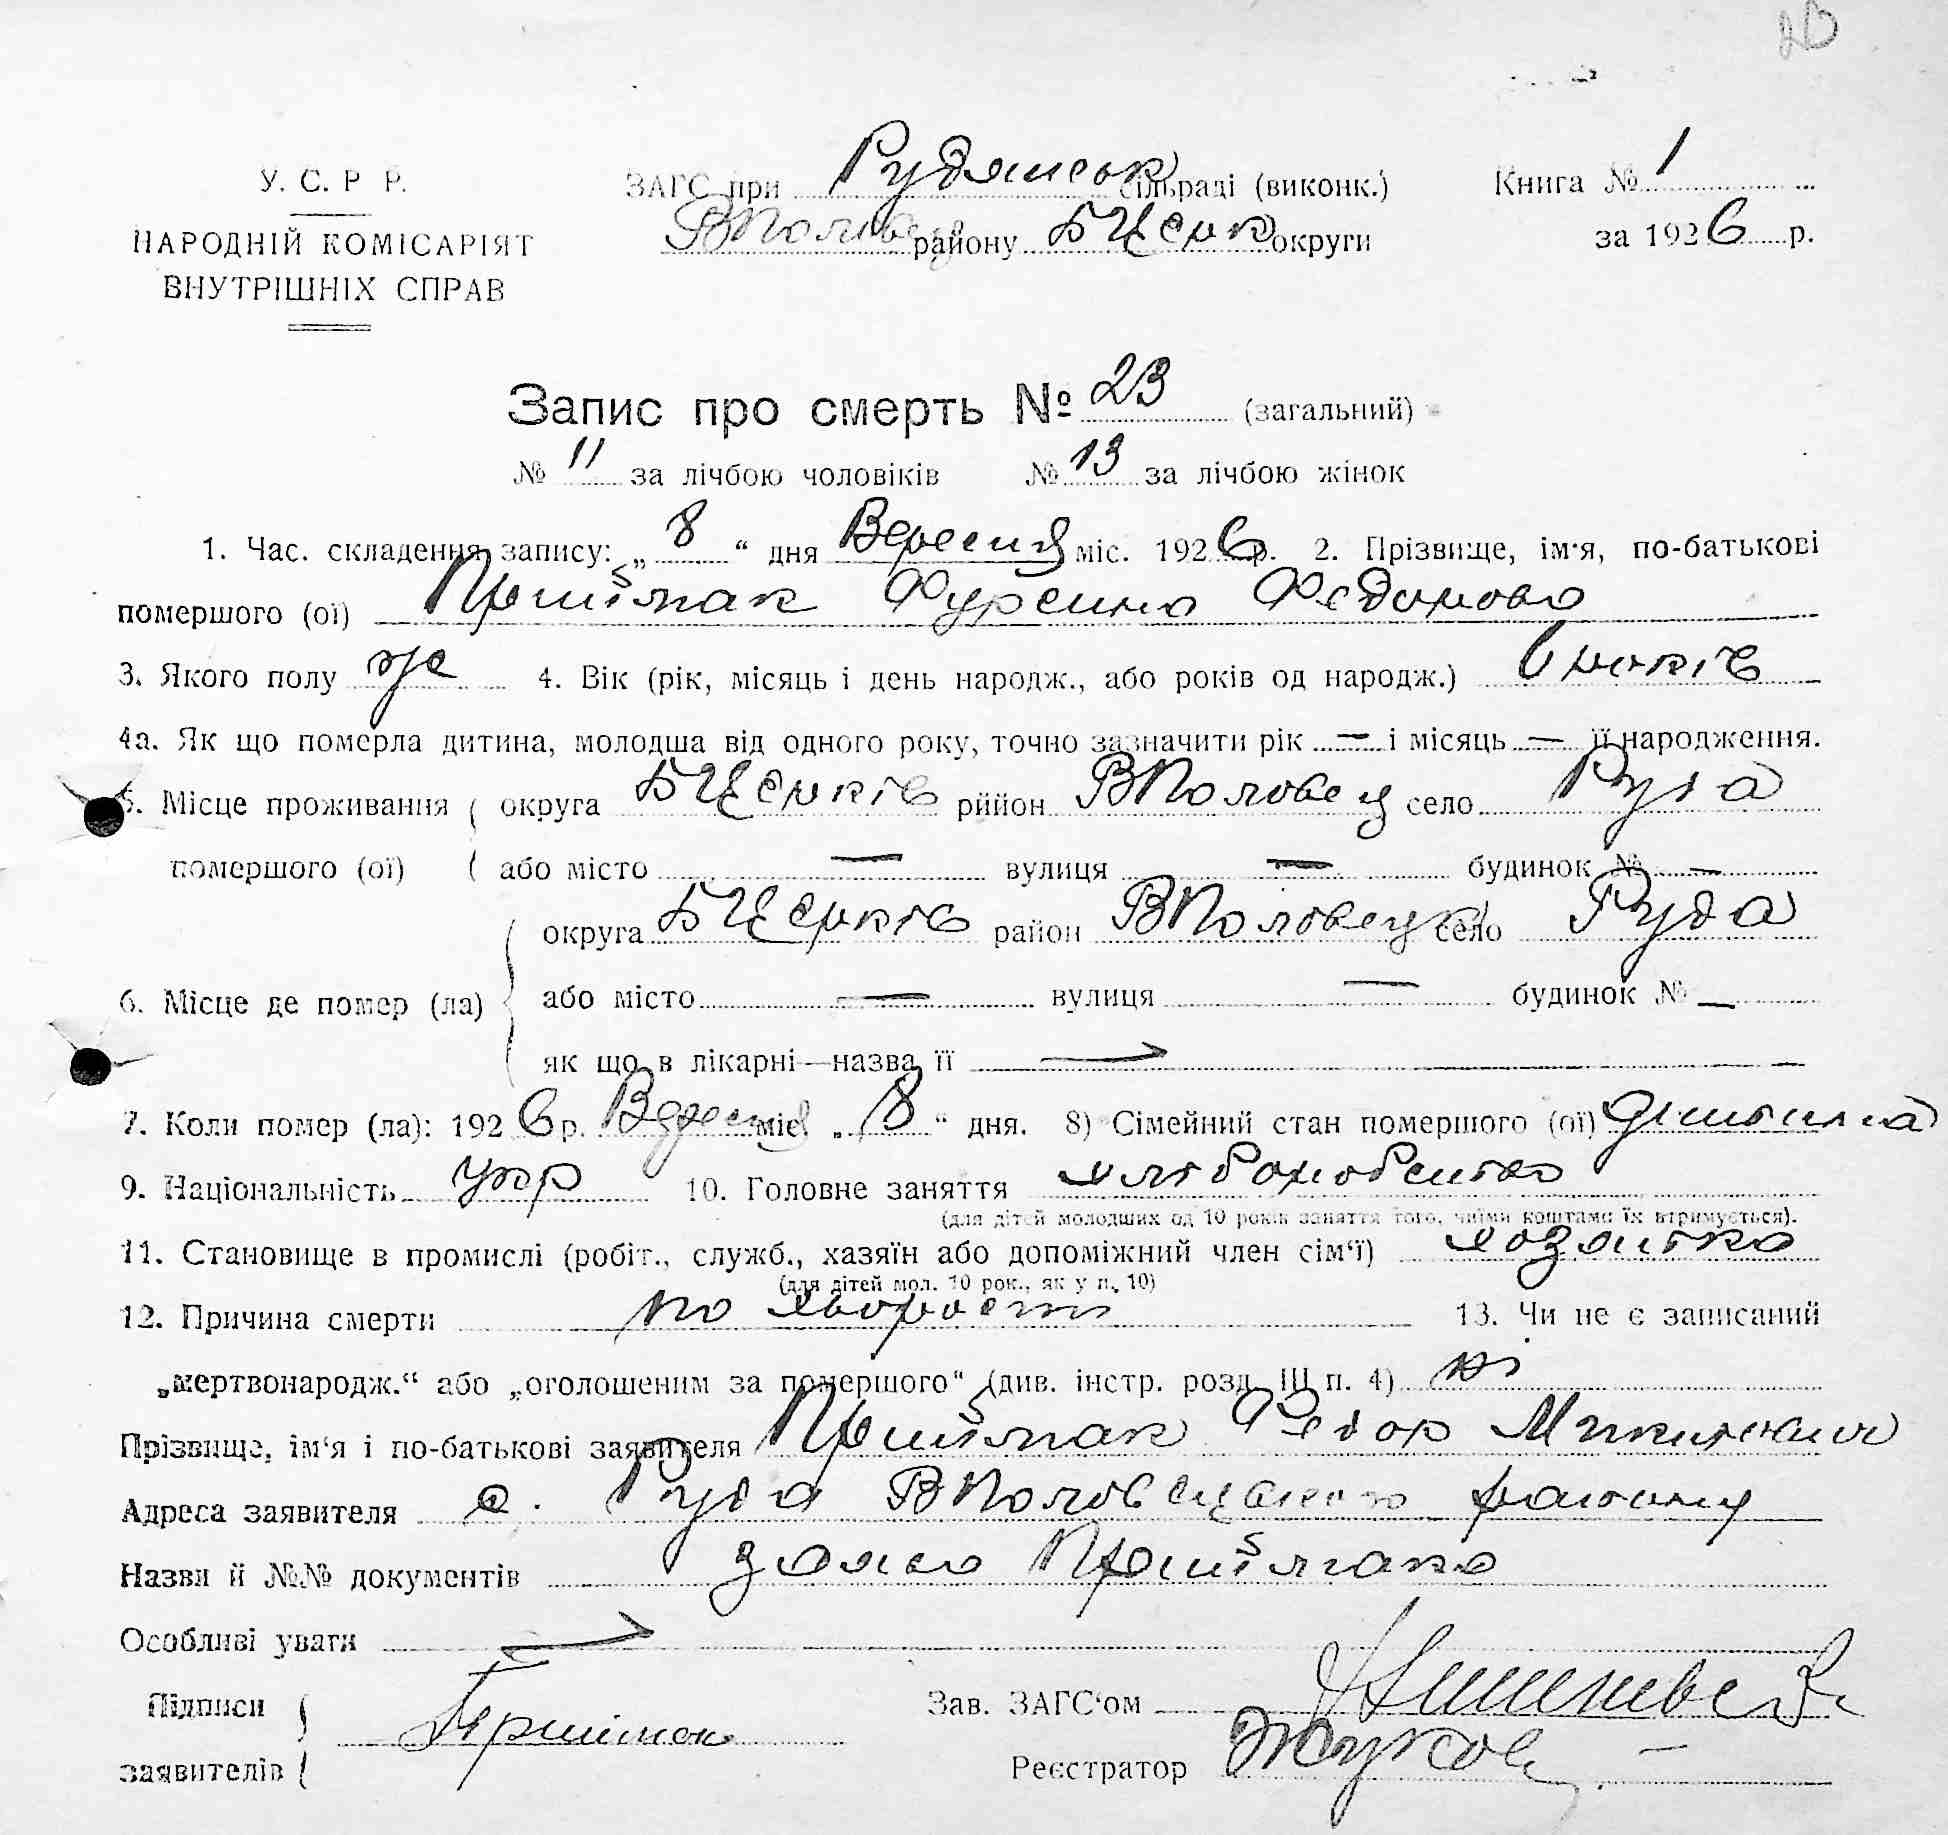 У. С. Р Р.
НАРОДНІЙ КОМІСАРІЯТ
ВНУТРІШНІХ СПРАВ
ЗАГС при Рудянськ сільраді (виконк.)
ВПоловец району БЦерк округи
Книга № 1
за 1926 р.
Запис про смерть № 23 (загальний)
№ 11 за лічбою чоловіків № 13 за лічбою жінок
1. Час. складення запису: „ 8 “ дня Вересня міс. 1926 р. 2. Прізвище, ім'я, по-батькові
помершого (ої) Приймак Фросина Федорова
3. Якого полу же 4. Вік (рік, місяць і день народж., або років од народж.) 6 років
4а. Як що померла дитина, молодша від одного року, точно зазначити рік — і місяць — її народження.
5. Місце проживання округа БЦерків рийон ВПоловец село Руда
помершого (ої) або місто — вулиця — будинок № —
округа БЦерків район ВПоловецк село Руда
6. Місце де помер (ла) або місто — вулиця — будинок № —
як що в лікарні—назва її —
7. Коли помер (ла): 1926 р. Вересня міс. „ 8 “ дня. 8) Сімейний стан помершого (ої) дитина
9. Національність укр 10. Головне заняття хліборобство
(для дітей молодших од 10 років заняття того, чиїми коштами їх втримується).
11. Становище в промислі (робіт., служб., хазяїн або допоміжний член сім'ї) хозяїтка
(для дітей мол. 10 рок., як у п. 10)
12. Причина смерти по хворости 13. Чи не є записаний
„мертвонародж.“ або „оголошеним за помершого“ (див. інстр. розд. III п. 4) ні
Прізвище, ім'я і по-батькові заявителя Приймак Федор
Адреса заявителя с. Руда ВПоловецького району
Назви й №№ документів заява Приймака
Особливі уваги —
Підписи
заявителів
Зав. ЗАГС'ом
Реєстратор